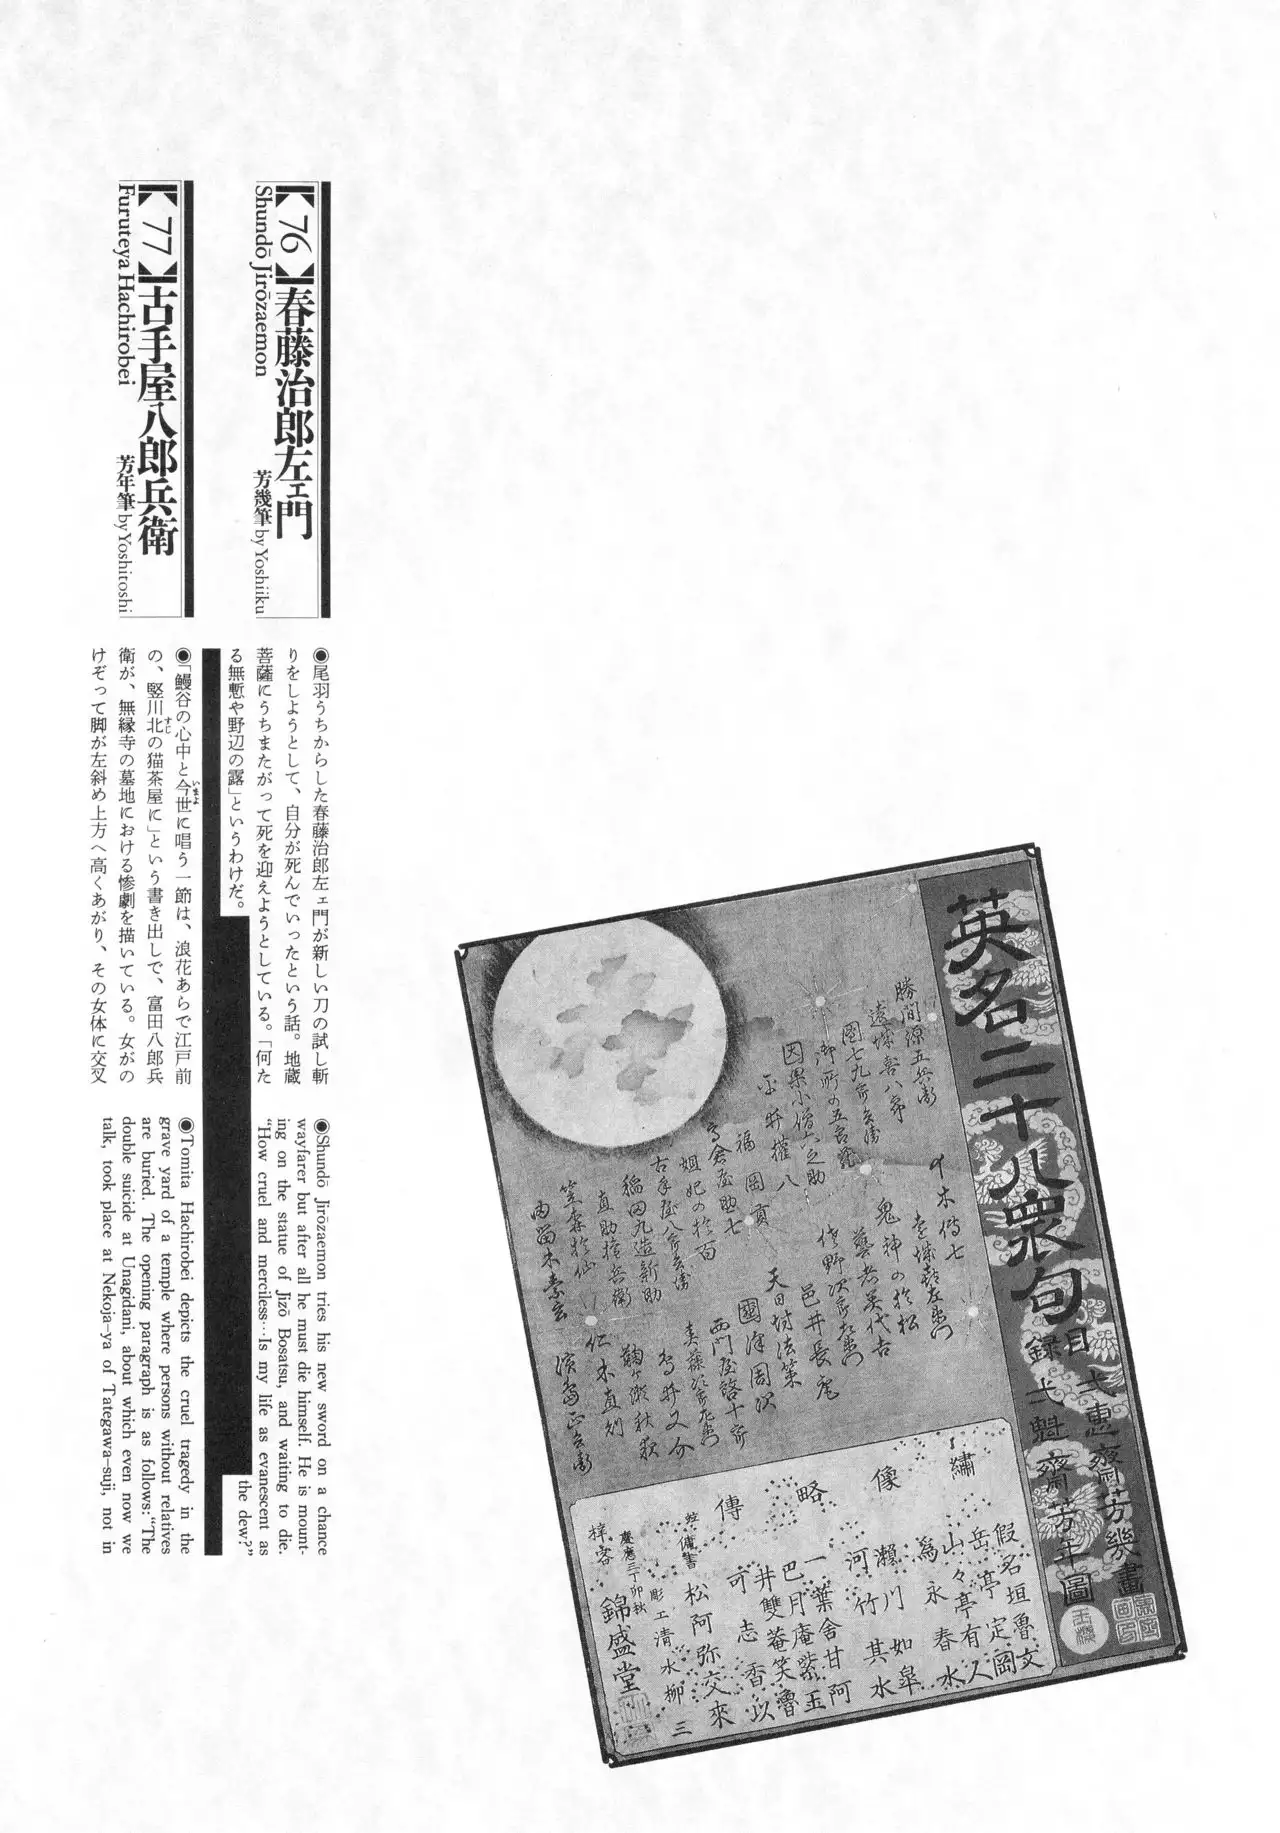 【76】春藤治郎左ェ門
Shundō Jirōzaemon
芳幾筆 by Yoshiiku
◉尾羽うちからした春藤治郎左ェ門が新しい刀の試し斬
りをしようとして、自分が死んでいったという話。地蔵
菩薩にうちまたがって死を迎えようとしている。「何た
る無慙や野辺の露」というわけだ。
◉Shundō Jirōzaemon tries his new sword on a chance
wayfarer but after all he must die himself. He is mount-
ing on the statue of Jizō Bosatsu, and waiting to die.
“How cruel and merciless…Is my life as evanescent as
the dew?”
【77】古手屋八郎兵衛
Furuteya Hachirobei
芳年筆 by Yoshitoshi
◉「鰻谷の心中と今世に唱う一節は、浪花あらで江戸前
いまよ
の、竪川北の猫茶屋に」という書き出しで、富田八郎兵
すじ
衛が、無縁寺の墓地における惨劇を描いている。女がの
けぞって脚が左斜め上方へ高くあがり、その女体に交叉
◉Tomita Hachirobei depicts the cruel tragedy in the
grave yard of a temple where persons without relatives
are buried. The opening paragraph is as follows:“The
double suicide at Unagidani, about which even now we
talk, took place at Nekoja-ya of Tategawa-suji, not in
英名二十八衆句
目録
一恵齋芳幾畫
一魁齋芳年圖
勝間源五兵衛
遠城喜八郎
團七九郎兵衛
御所の五郎蔵
因果小僧六之助
平井權八
福岡貢
高倉屋助七
妲妃の於百
古手屋八郎兵衛
稲田九造新助
直助権兵衛
笠森於仙
由留木素玄
十木傳七
遠城喜左衛門
鬼神の於松
藝者美代吉
佐野次郎左衛門
邑井長庵
天日坊法策
國澤周次
西門屋啓十郎
春藤次郎左衛門
鳥井又介
鞠ヶ瀬秋夜
仁木直則
濱嶌正兵衛
繍像略傳
假名垣魯文
岳亭定岡
山々亭有人
為永春水
瀬川如皐
河竹其水
一葉舎甘阿
巴月庵紫玉
井雙菴笑魯
可志香以
傭書
松阿弥交來
彫工清水柳三
慶應三丁卯秋
梓客
錦盛堂